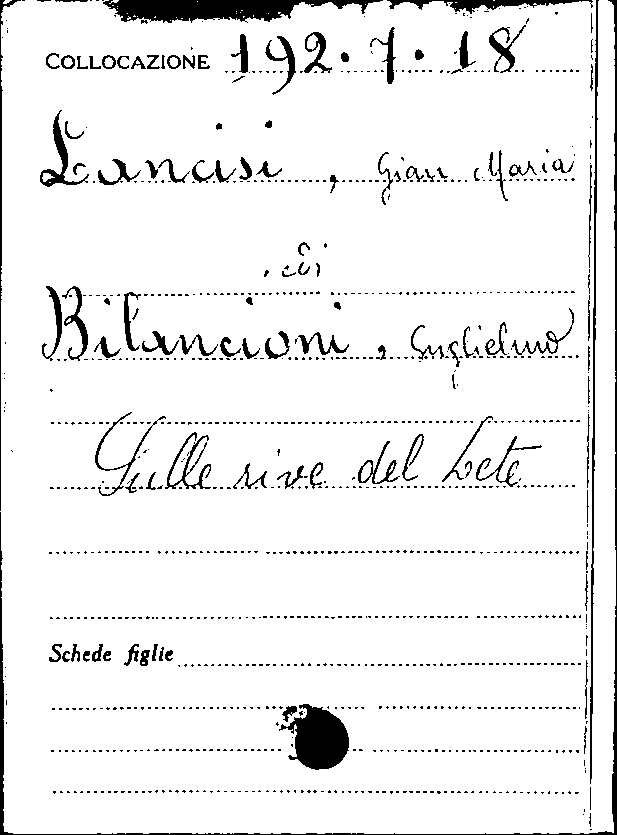 COLLOCAZIONE 192.7.18
Lancisi, Gian Maria
Bilancioni, Guglielmo
Sulle rive del Lete
Schede figlie